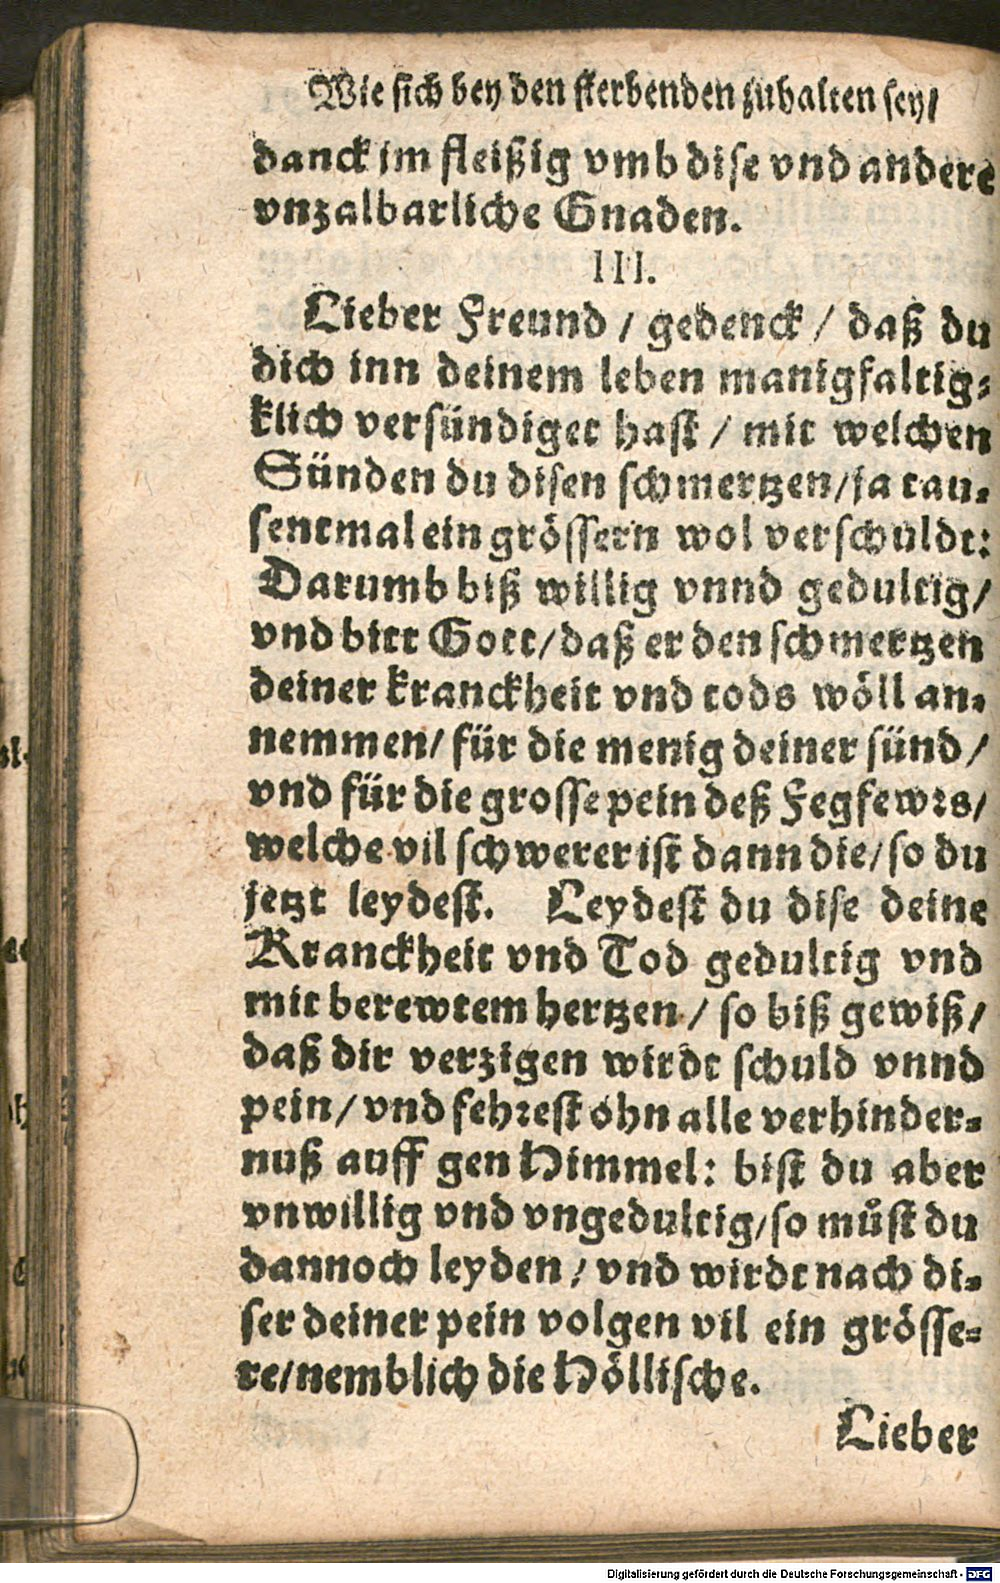 Wie sich bey den sterbenden zuhalten sey/
danck im fleißig vmb dise vnd andere
vnzalbarliche Gnaden.
III.
Lieber Freund / gedenck / daß du
dich inn deinem leben manigfaltig-
klich versündiget hast / mit welchen
Sünden du disen schmertzen/ja tau-
sentmal ein grössern wol verschuldt:
Darumb biß willig vnnd gedultig/
vnd bitt Gott/daß er den schmertzen
deiner kranckheit vnd tods wöll an-
nemmen/ für die menig deiner sünd/
vnd für die grosse pein deß Fegfewrs/
welche vil schwerer ist dann die/so du
jetzt leydest. Leydest du dise deine
Kranckheit vnd Tod gedultig vnd
mit berewtem hertzen / so biß gewiß/
daß dir verzigen wirdt schuld vnnd
pein/vnd fehrest ohn alle verhinder-
nuß auff gen Himmel: bist du aber
vnwillig vnd vngedultig/so můst du
dannoch leyden / vnd wirdt nach di-
ser deiner pein volgen vil ein grösse-
re/nemblich die Höllische.
Lieber
Digitalisierung gefördert durch die Deutsche Forschungsgemeinschaft - DFG